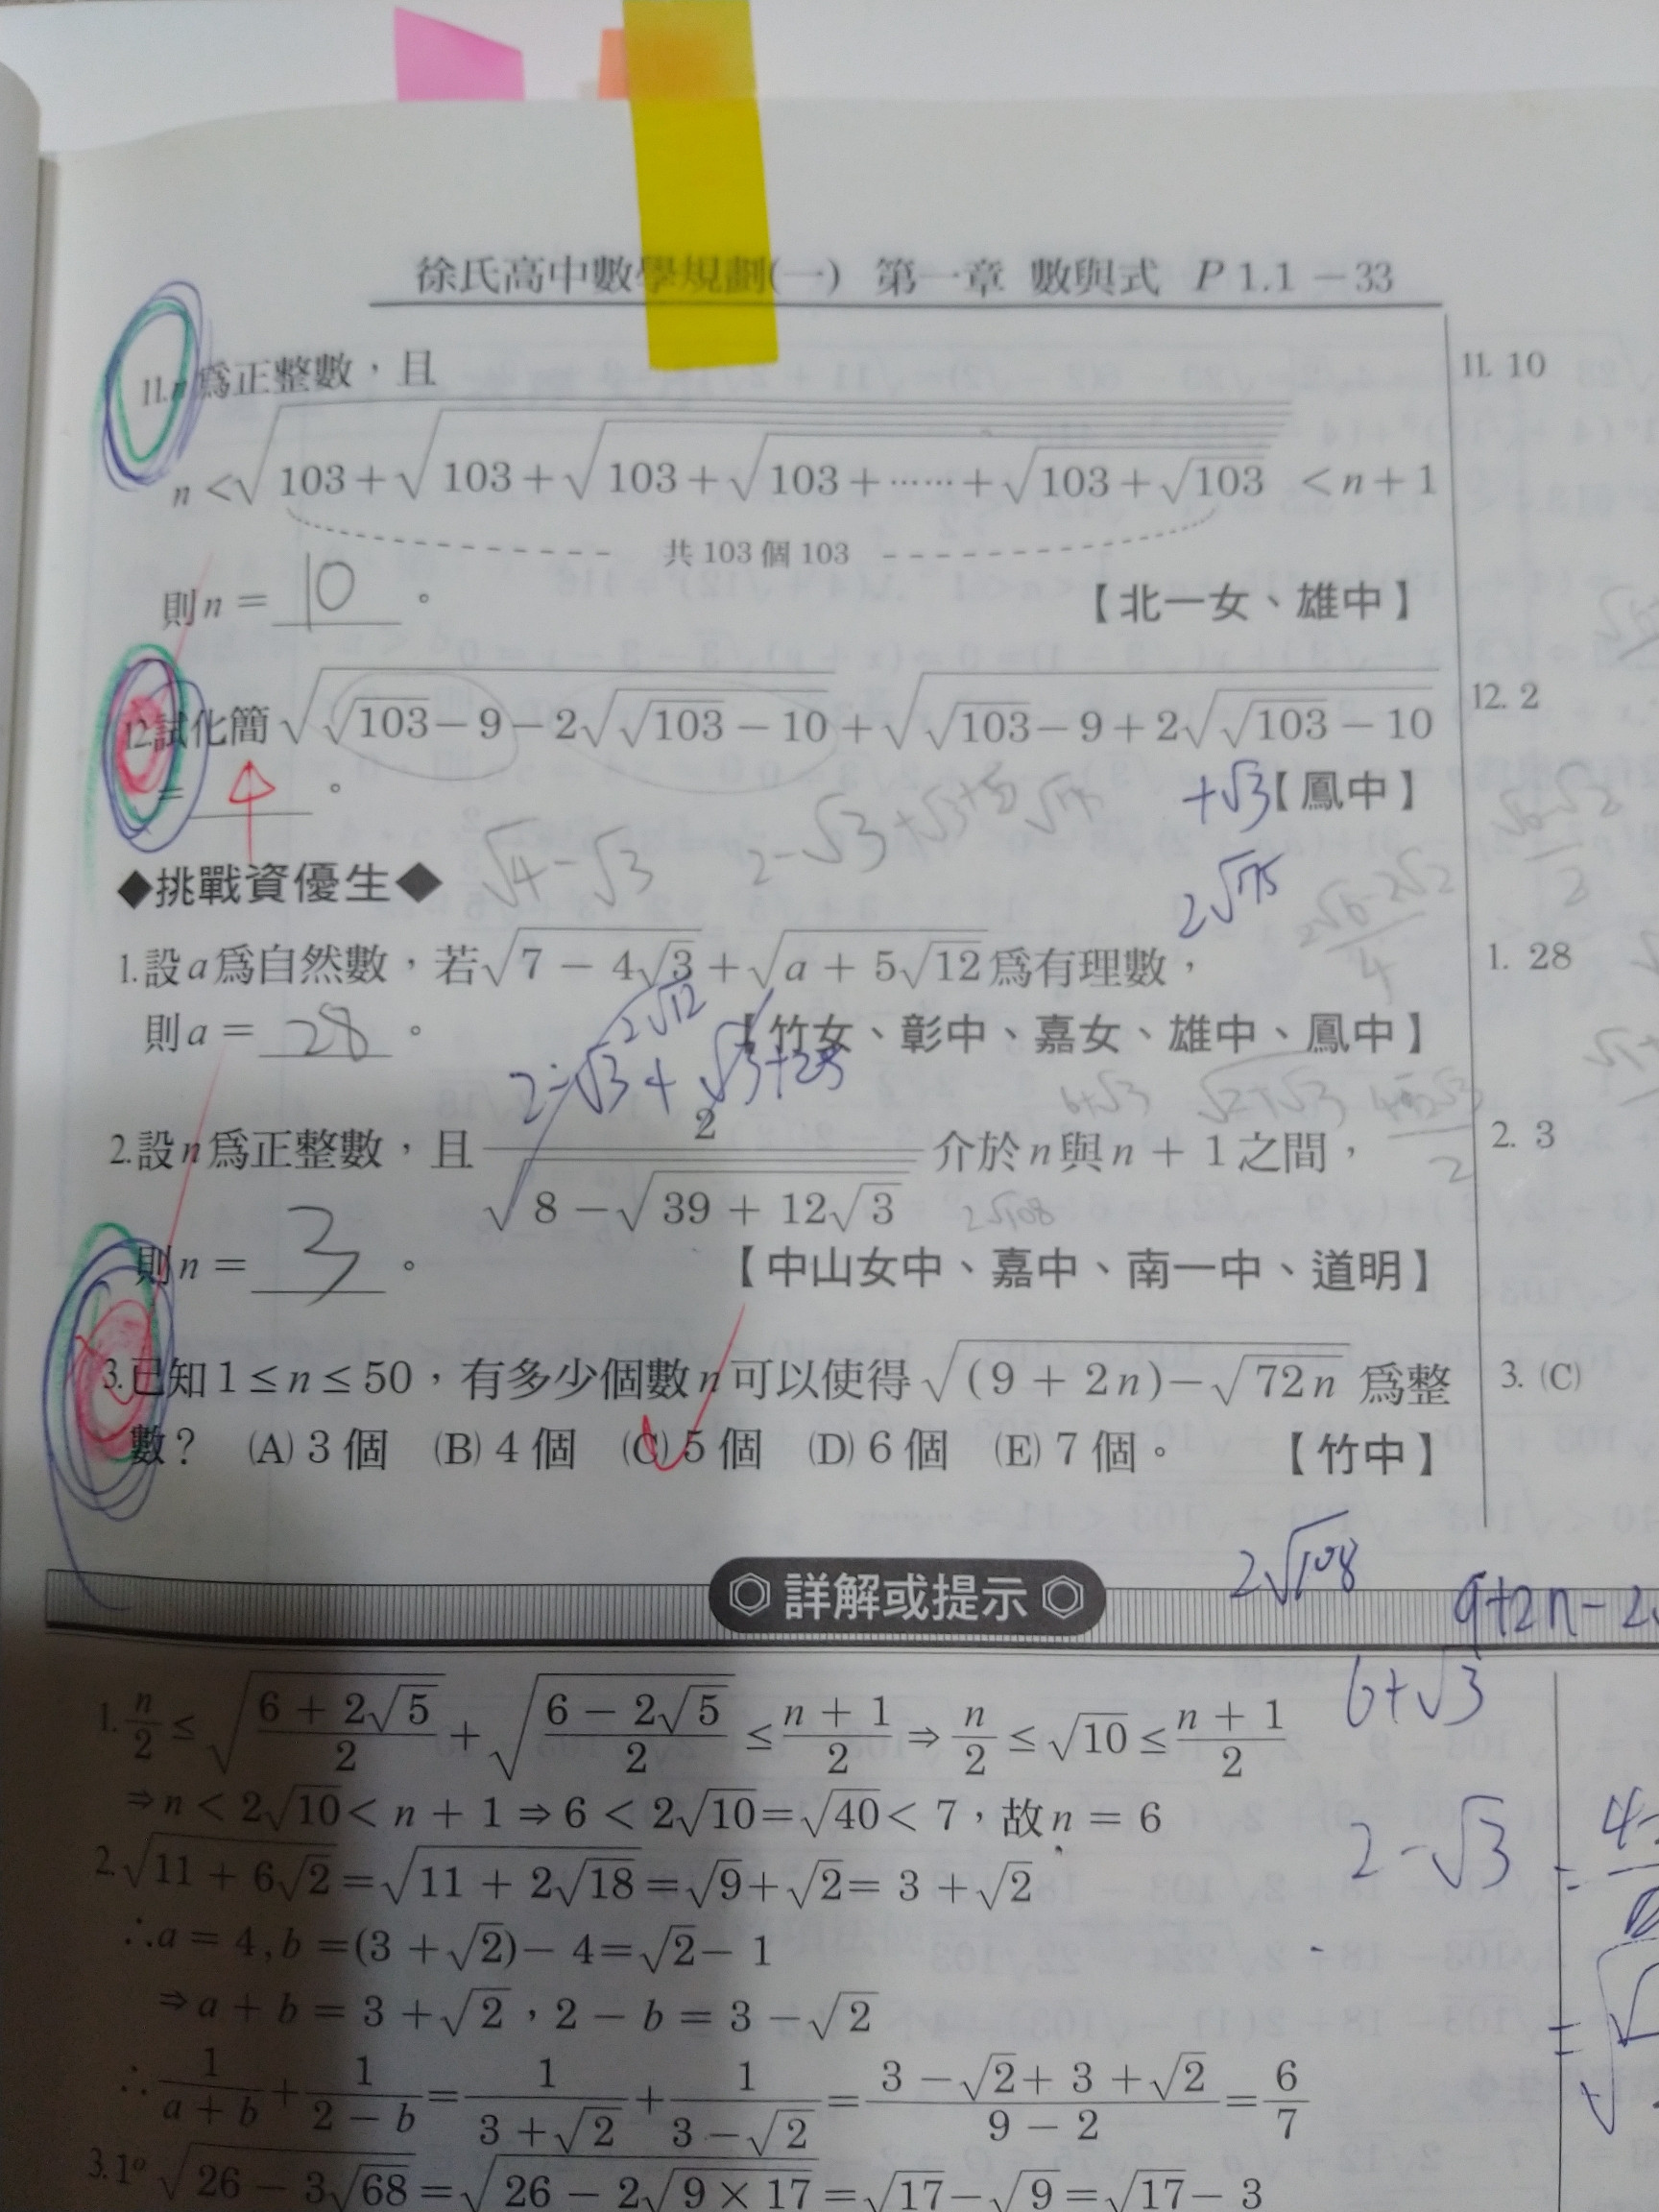 徐氏高中數學規劃(一) 第一章 數與式 P 1.1 − 33
11. n 爲正整數，且
n < √(103 + √(103 + √(103 + √(103 + ⋯⋯ + √(103 + √103))))) < n + 1
共 103 個 103
則 n = 10 。 【北一女、雄中】
11. 10
12. 試化簡 √(√103 − 9 − 2√(√103 − 10)) + √(√103 − 9 + 2√(√103 − 10))
= 4 。 【鳳中】
12. 2
+√3
√4 − √3
2√75
◆挑戰資優生◆
1. 設 a 爲自然數，若 √(7 − 4√3) + √(a + 5√12) 爲有理數，
則 a = 28 。 【竹女、彰中、嘉女、雄中、鳳中】
1. 28
2√12
2. 設 n 爲正整數，且 2/√(8 − √(39 + 12√3)) 介於 n 與 n + 1 之間，
2√108
則 n = 3 。 【中山女中、嘉中、南一中、道明】
2. 3
3. 已知 1 ≤ n ≤ 50，有多少個數 n 可以使得 √((9 + 2n) − √(72n)) 爲整
數？ (A) 3 個 (B) 4 個 (C) 5 個 (D) 6 個 (E) 7 個。 【竹中】
3. (C)
詳解或提示
2√108
9+2n−2
6+√3
2−√3
1. n/2 ≤ √((6 + 2√5)/2) + √((6 − 2√5)/2) ≤ (n + 1)/2 ⇒ n/2 ≤ √10 ≤ (n + 1)/2
⇒ n < 2√10 < n + 1 ⇒ 6 < 2√10 = √40 < 7，故 n = 6
2. √(11 + 6√2) = √(11 + 2√18) = √9 + √2 = 3 + √2
∴ a = 4, b = (3 + √2) − 4 = √2 − 1
⇒ a + b = 3 + √2，2 − b = 3 − √2
∴ 1/(a + b) + 1/(2 − b) = 1/(3 + √2) + 1/(3 − √2) = (3 − √2 + 3 + √2)/(9 − 2) = 6/7
3. 1° √(26 − 3√68) = √(26 − 2√(9 × 17)) = √17 − √9 = √17 − 3